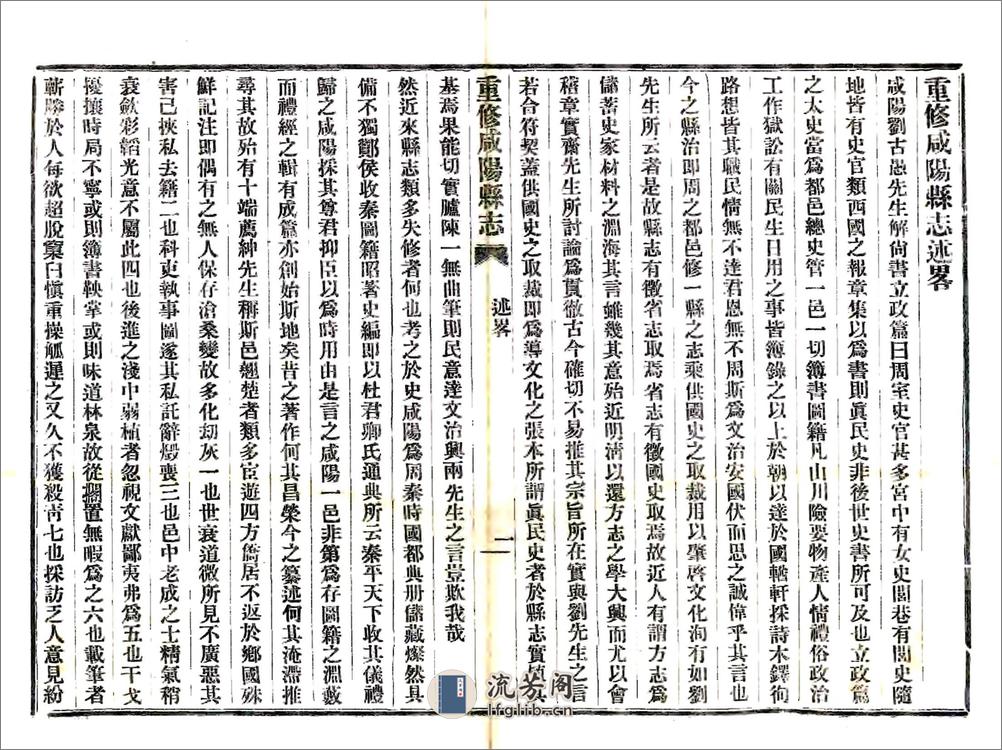 重修咸陽縣志述畧
咸陽劉古愚先生解尚書立政篇曰周室史官甚多宮中有女史閭巷有閭史隨
地皆有史官類西國之報章集以爲書則眞民史非後世史書所可及也立政篇
之太史當爲都邑總史管一邑一切簿書圖籍凡山川險要物產人情禮俗政治
工作獄訟有關民生日用之事皆簿錄之以上於朝以達於國輶軒採詩木鐸徇
路想皆其職民情無不達君恩無不周斯爲文治安國伏而思之誠偉乎其言也
今之縣治即周之都邑修一縣之志乘供國史之取裁用以肇啓文化洵有如劉
先生所云者是故縣志有徵省志取焉省志有徵國史取焉故近人有謂方志爲
儲蓄史家材料之淵海其言雖幾其意殆近明淸以還方志之學大興而尤以會
稽章實齋先生所討論爲貫徹古今確切不易推其宗旨所在實與劉先生之言
若合符契蓋供國史之取裁即爲導文化之張本所謂眞民史者於縣志實植其
重修咸陽縣志
述畧
一
基焉果能切實臚陳一無曲筆則民意達文治興兩先生之言豈欺我哉
然近來縣志類多失修者何也考之於史咸陽爲周秦時國都典册儲藏燦然具
備不獨酇侯收秦圖籍昭著史編即以杜君卿氏通典所云秦平天下收其儀禮
歸之咸陽採其尊君抑臣以爲時用由是言之咸陽一邑非第爲存圖籍之淵藪
而禮經之輯有成篇亦創始斯地矣昔之著作何其昌榮今之纂述何其淹滯推
尋其故殆有十端薦紳先生稱斯邑翹楚者類多宦遊四方僑居不返於鄉國殊
鮮記注即偶有之無人保存滄桑變故多化劫灰一也世衰道微所見不廣惡其
害已挾私去籍二也科吏執事圖遂其私託辭燬喪三也邑中老成之士精氣稍
衰斂彩韜光意不屬此四也後進之淺中弱植者忽視文獻鄙夷弗爲五也干戈
擾攘時局不寧或則簿書鞅掌或則味道林泉故從擱置無暇爲之六也載筆者
蘄勝於人每欲超脫窠臼愼重操觚遲之又久不獲殺靑七也採訪乏人意見紛
流芳阁
lfglib.cn